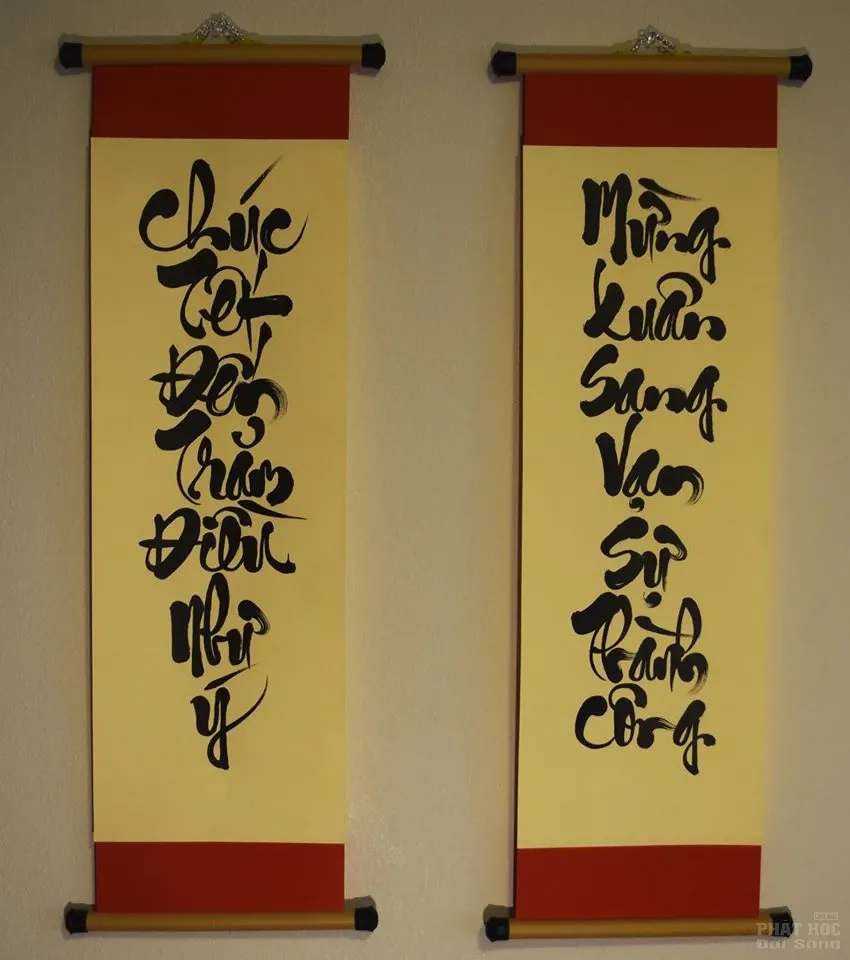 Chúc
Tết
Đến
Trăm
Điều
Như
Ý
Mừng
Xuân
Sang
Vạn
Sự
Thành
Công
ONLINE
PHẬT HỌC
Đời Sống